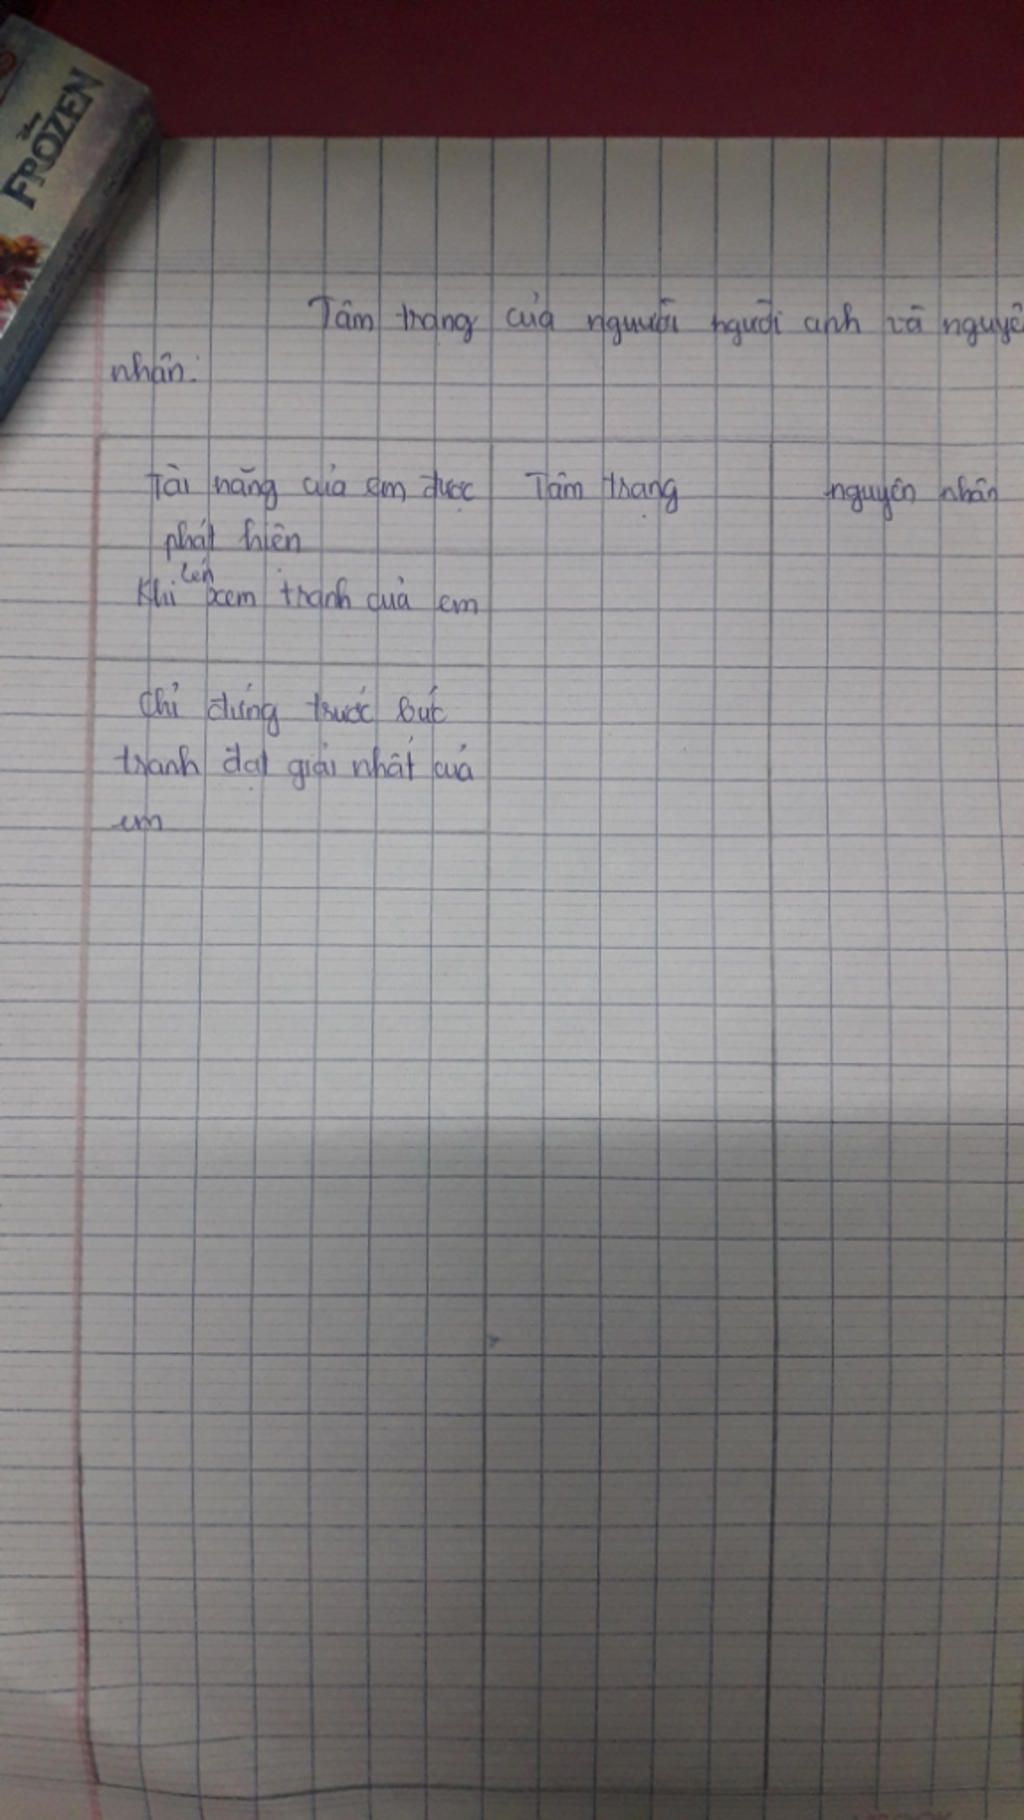 Disney
FROZEN
Tâm trạng của người người anh và nguyê
nhân:
Tài năng của em được
phát hiện
Tâm trạng
nguyên nhân
lén
Khi xem tranh của em
Khi đứng trước bức
tranh đạt giải nhất của
em